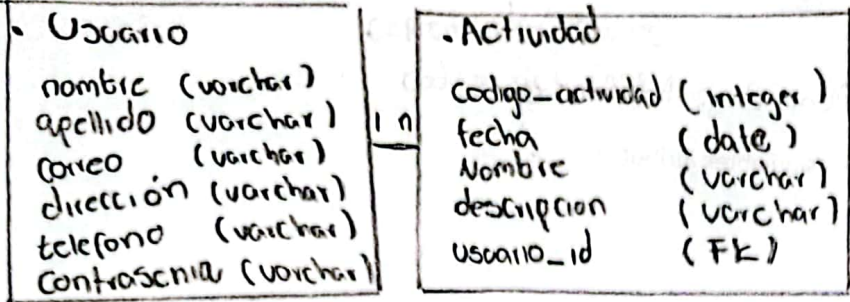 . Usuario
nombre (varchar)
apellido (varchar)
correo (varchar)
dirección (varchar)
telefono (varchar)
contrasenia (varchar)
1 n
. Actividad
codigo_actividad (integer)
fecha (date)
Nombre (varchar)
descripcion (varchar)
usuario_id (FK)